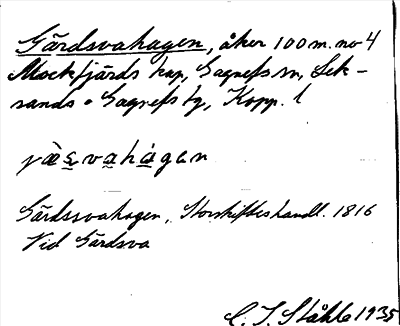 Gärdsvahagen, åker 100 m. nv
Mockfjärds kap, Gagnefs sn, Lek-
sands o Gagnefs tg, Kopp. l
jä̀s̲va̲há̲gan
Gärdssvahagen, Storskifteshandl. 1816
Vid Gärdsva
C. I. Ståhle 1935